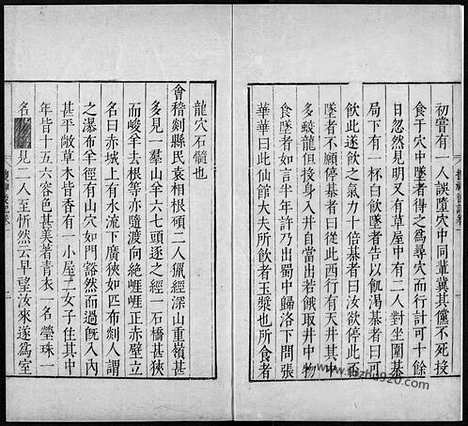 初嘗有一人誤墮穴中同輩冀其儻不死投
食于穴中墜者得之為尋穴而行計可十餘
日忽然見明又有草屋中有二人對坐圍碁
局下有一杯白飲墜者告以飢渴碁者曰可
飲此墜者飲之氣力十倍碁者曰汝欲停此
不墜者曰不願停碁者曰從此西行有天井其中
多蛟龍但投身入井自當出若餓取井中物
食墜者如言半年許乃出蜀中歸洛下問張
華華曰此仙館大夫所飲者玉漿也所食者
龍穴石髓也
會稽剡縣民袁相根碩二人獵經深山重嶺甚
多見一羣山羊六七頭逐之經一石橋甚狹
而峻羊去根等亦隨渡向絕崖崖正赤壁立
名曰赤城上有水流下廣狹如匹布剡人謂
之瀑布羊徑有山穴如門豁然而過既入內
甚平敞草木皆香有一小屋二女子住其中
年皆十五六容色甚美著青衣一名瑩珠一
名 見二人至忻然云早望汝來遂為室